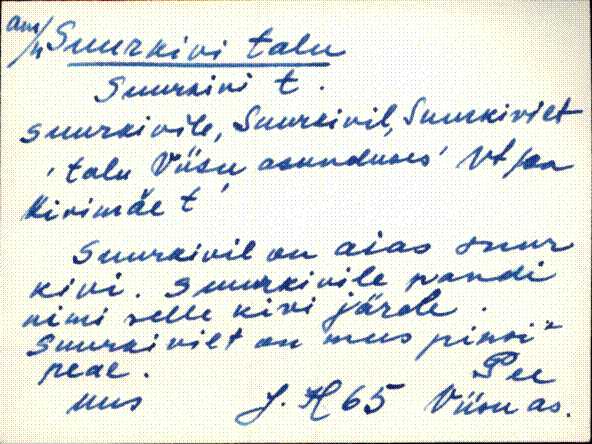 Suurkivi talu
Suurkivi t.
Suurkivile, Suurkivil, Suurkivilt
'talu Viisu asunduses' Vt ka
Kivimäe t
Suurkivil on aias suur
kivi. Suurkivile pandi
nimi selle kivi järele.
Suurkivilt on mus
peal. Pee
uus J. H 65 Viisu as.